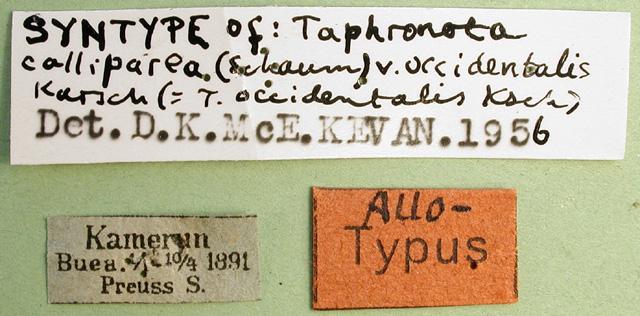 SYNTYPE of: Taphronota
calliparea (Schaum) v. occidentalis
Karsch (= T. occidentalis Ksch)
Det. D.K.McE.KEVAN.1956
Kamerun
Buea. 10/4 1891
Preuss S.
Allo-
Typus